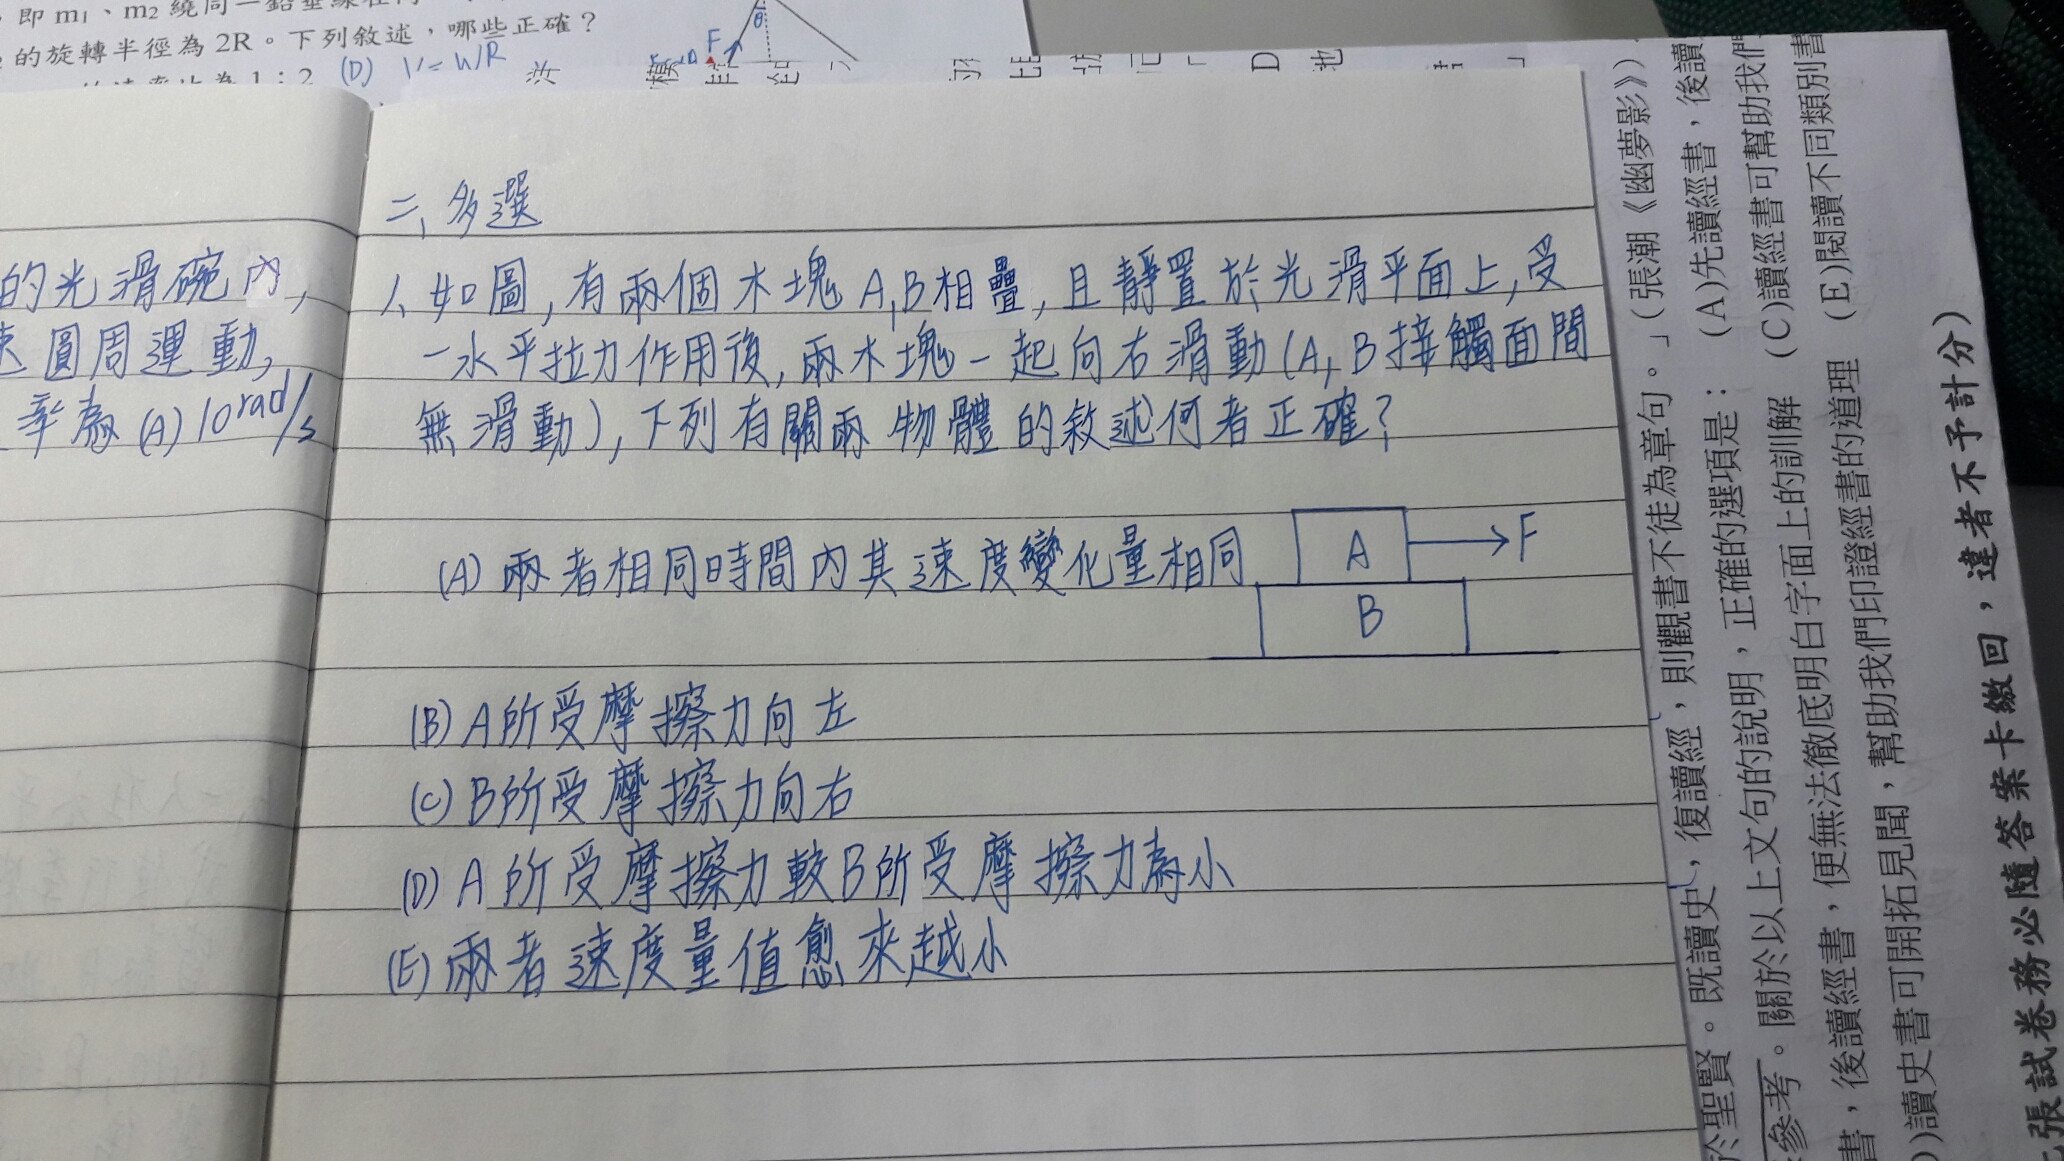 的旋轉半徑為 2R。下列敘述，哪些正確？
(D) V=WR
θ
F
的光滑碗內,
圓周運動,
率為 (A) 10 rad/s
二、多選
1、如圖,有兩個木塊A,B相疊,且靜置於光滑平面上,受
一水平拉力作用後,兩木塊一起向右滑動(A,B接觸面間
無滑動),下列有關兩物體的敘述何者正確?
(A) 兩者相同時間內其速度變化量相同
A
F
B
(B) A所受摩擦力向左
(C) B所受摩擦力向右
(D) A所受摩擦力較B所受摩擦力為小
(E) 兩者速度量值愈來越小
(E)閱讀不同類別書
(C)讀經書可幫助我們
(A)先讀經書，後讀
」(張潮《幽夢影》)
於聖賢。既讀史，復讀經，則觀書不徒為章句。
參考。關於以上文句的說明，正確的選項是：
書，後讀經書，便無法徹底明白字面上的訓解
)讀史書可開拓見聞，幫助我們印證經書的道理
張試卷務必隨答案卡繳回，違者不予計分)